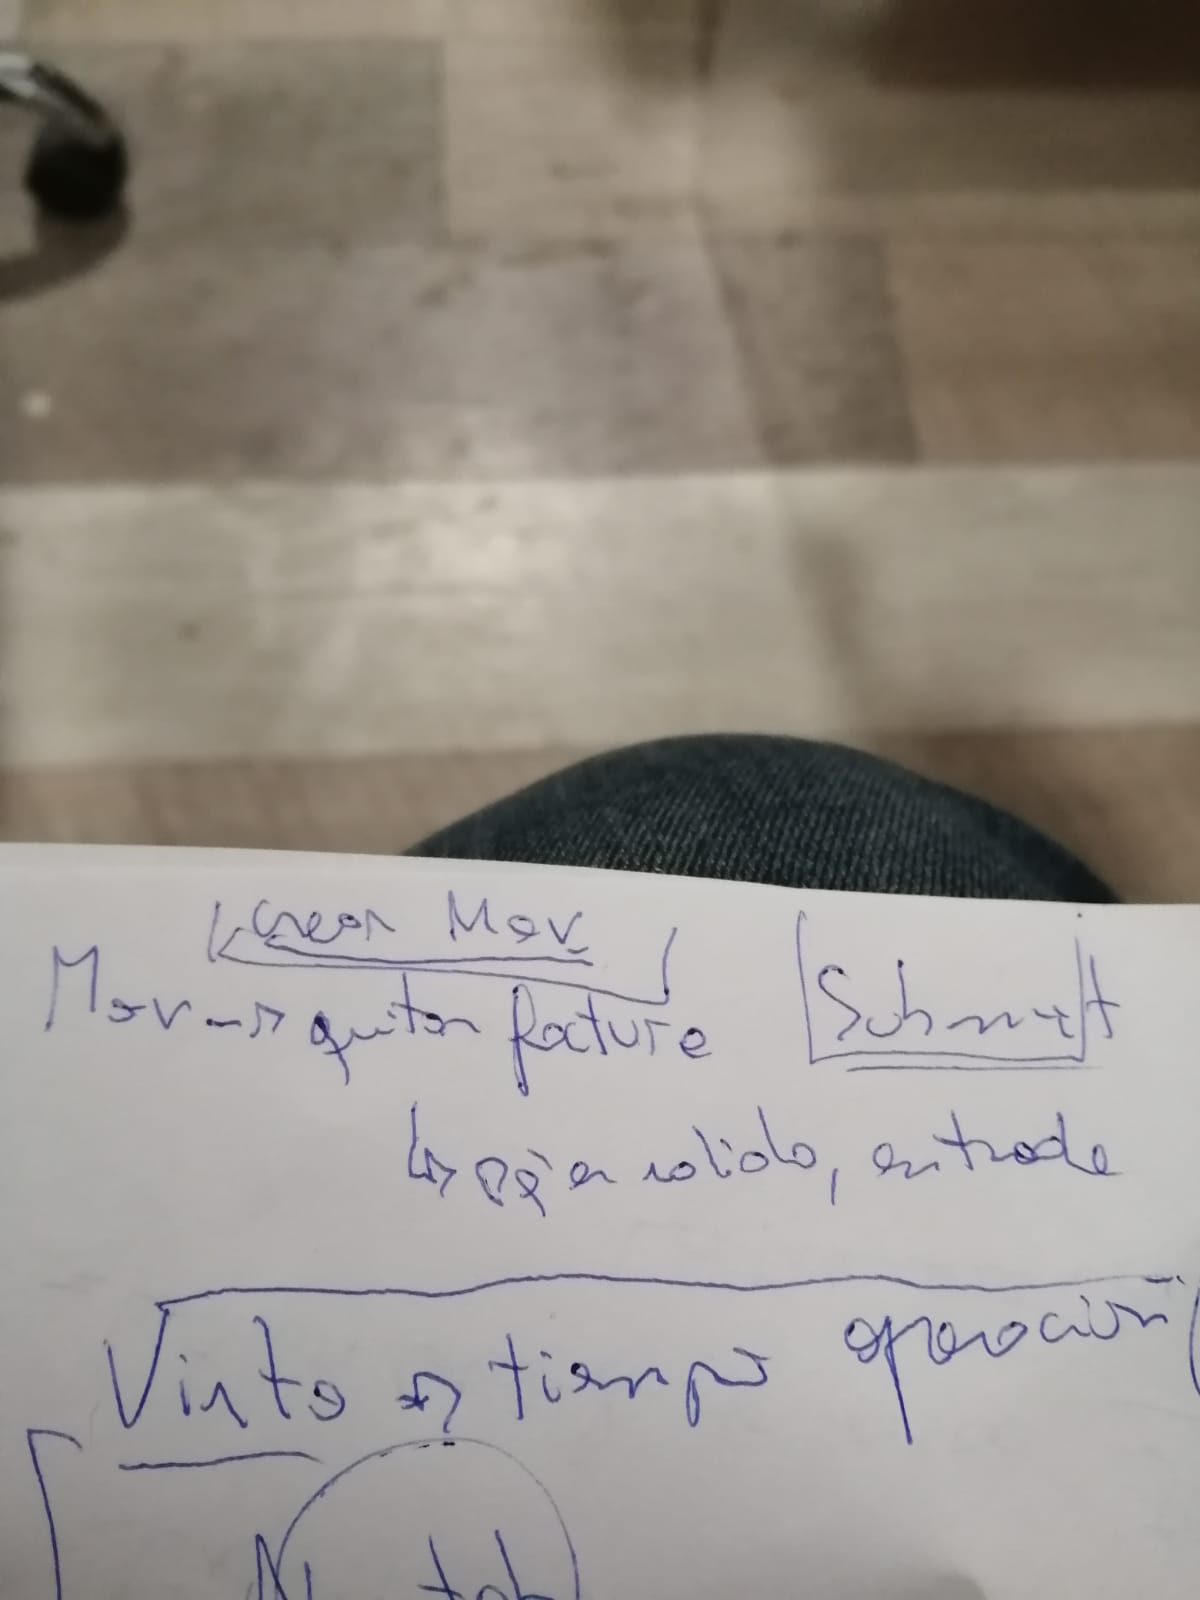 Crear Mov
Mov → quitar factura Schmidt
↳ salida, entrada
Vista → tiempo operación